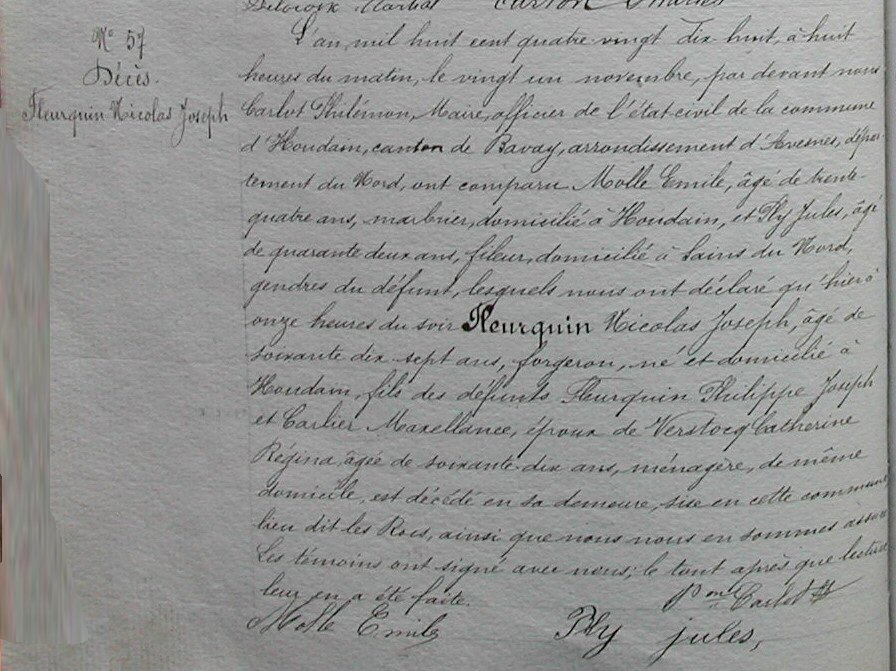 Delacroix Martial Carton Charles
N° 57
Décès.
Fleurquin Nicolas Joseph
L'an mil huit cent quatre-vingt dix huit, à huit
heures du matin, le vingt un novembre, par devant nous
Carlot Philémon, Maire, officier de l'état civil de la commune
d'Houdain, canton de Bavay, arrondissement d'Avesnes, dépar-
tement du Nord, ont comparu Molle Emile, âgé de trente-
quatre ans, marbrier, domicilié à Houdain, et Ply Jules, âgé
de quarante deux ans, fileur, domicilié à Sains du Nord,
gendres du défunt, lesquels nous ont déclaré qu'hier à
onze heures du soir Fleurquin Nicolas Joseph, âgé de
soixante dix-sept ans, forgeron, né et domicilié à
Houdain, fils des défunts Fleurquin Philippe Joseph
et Carlier Maxellance, époux de Verstocq Catherine
Régina, âgée de soixante-dix ans, ménagère, de même
domicile, est décédé en sa demeure, sise en cette commune
lieu dit les Rocs, ainsi que nous nous en sommes assuré
Les témoins ont signé avec nous; le tout après que lecture
leur en a été faite.
Carlot
Molle Emile Ply jules,